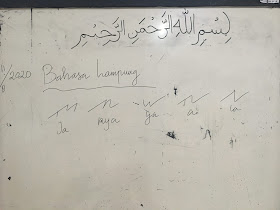 بِسْمِ اللهِ الرَّحْمَنِ الرَّحِيْمِ
/2020 Bahasa Lampung
Ja nya ya a la